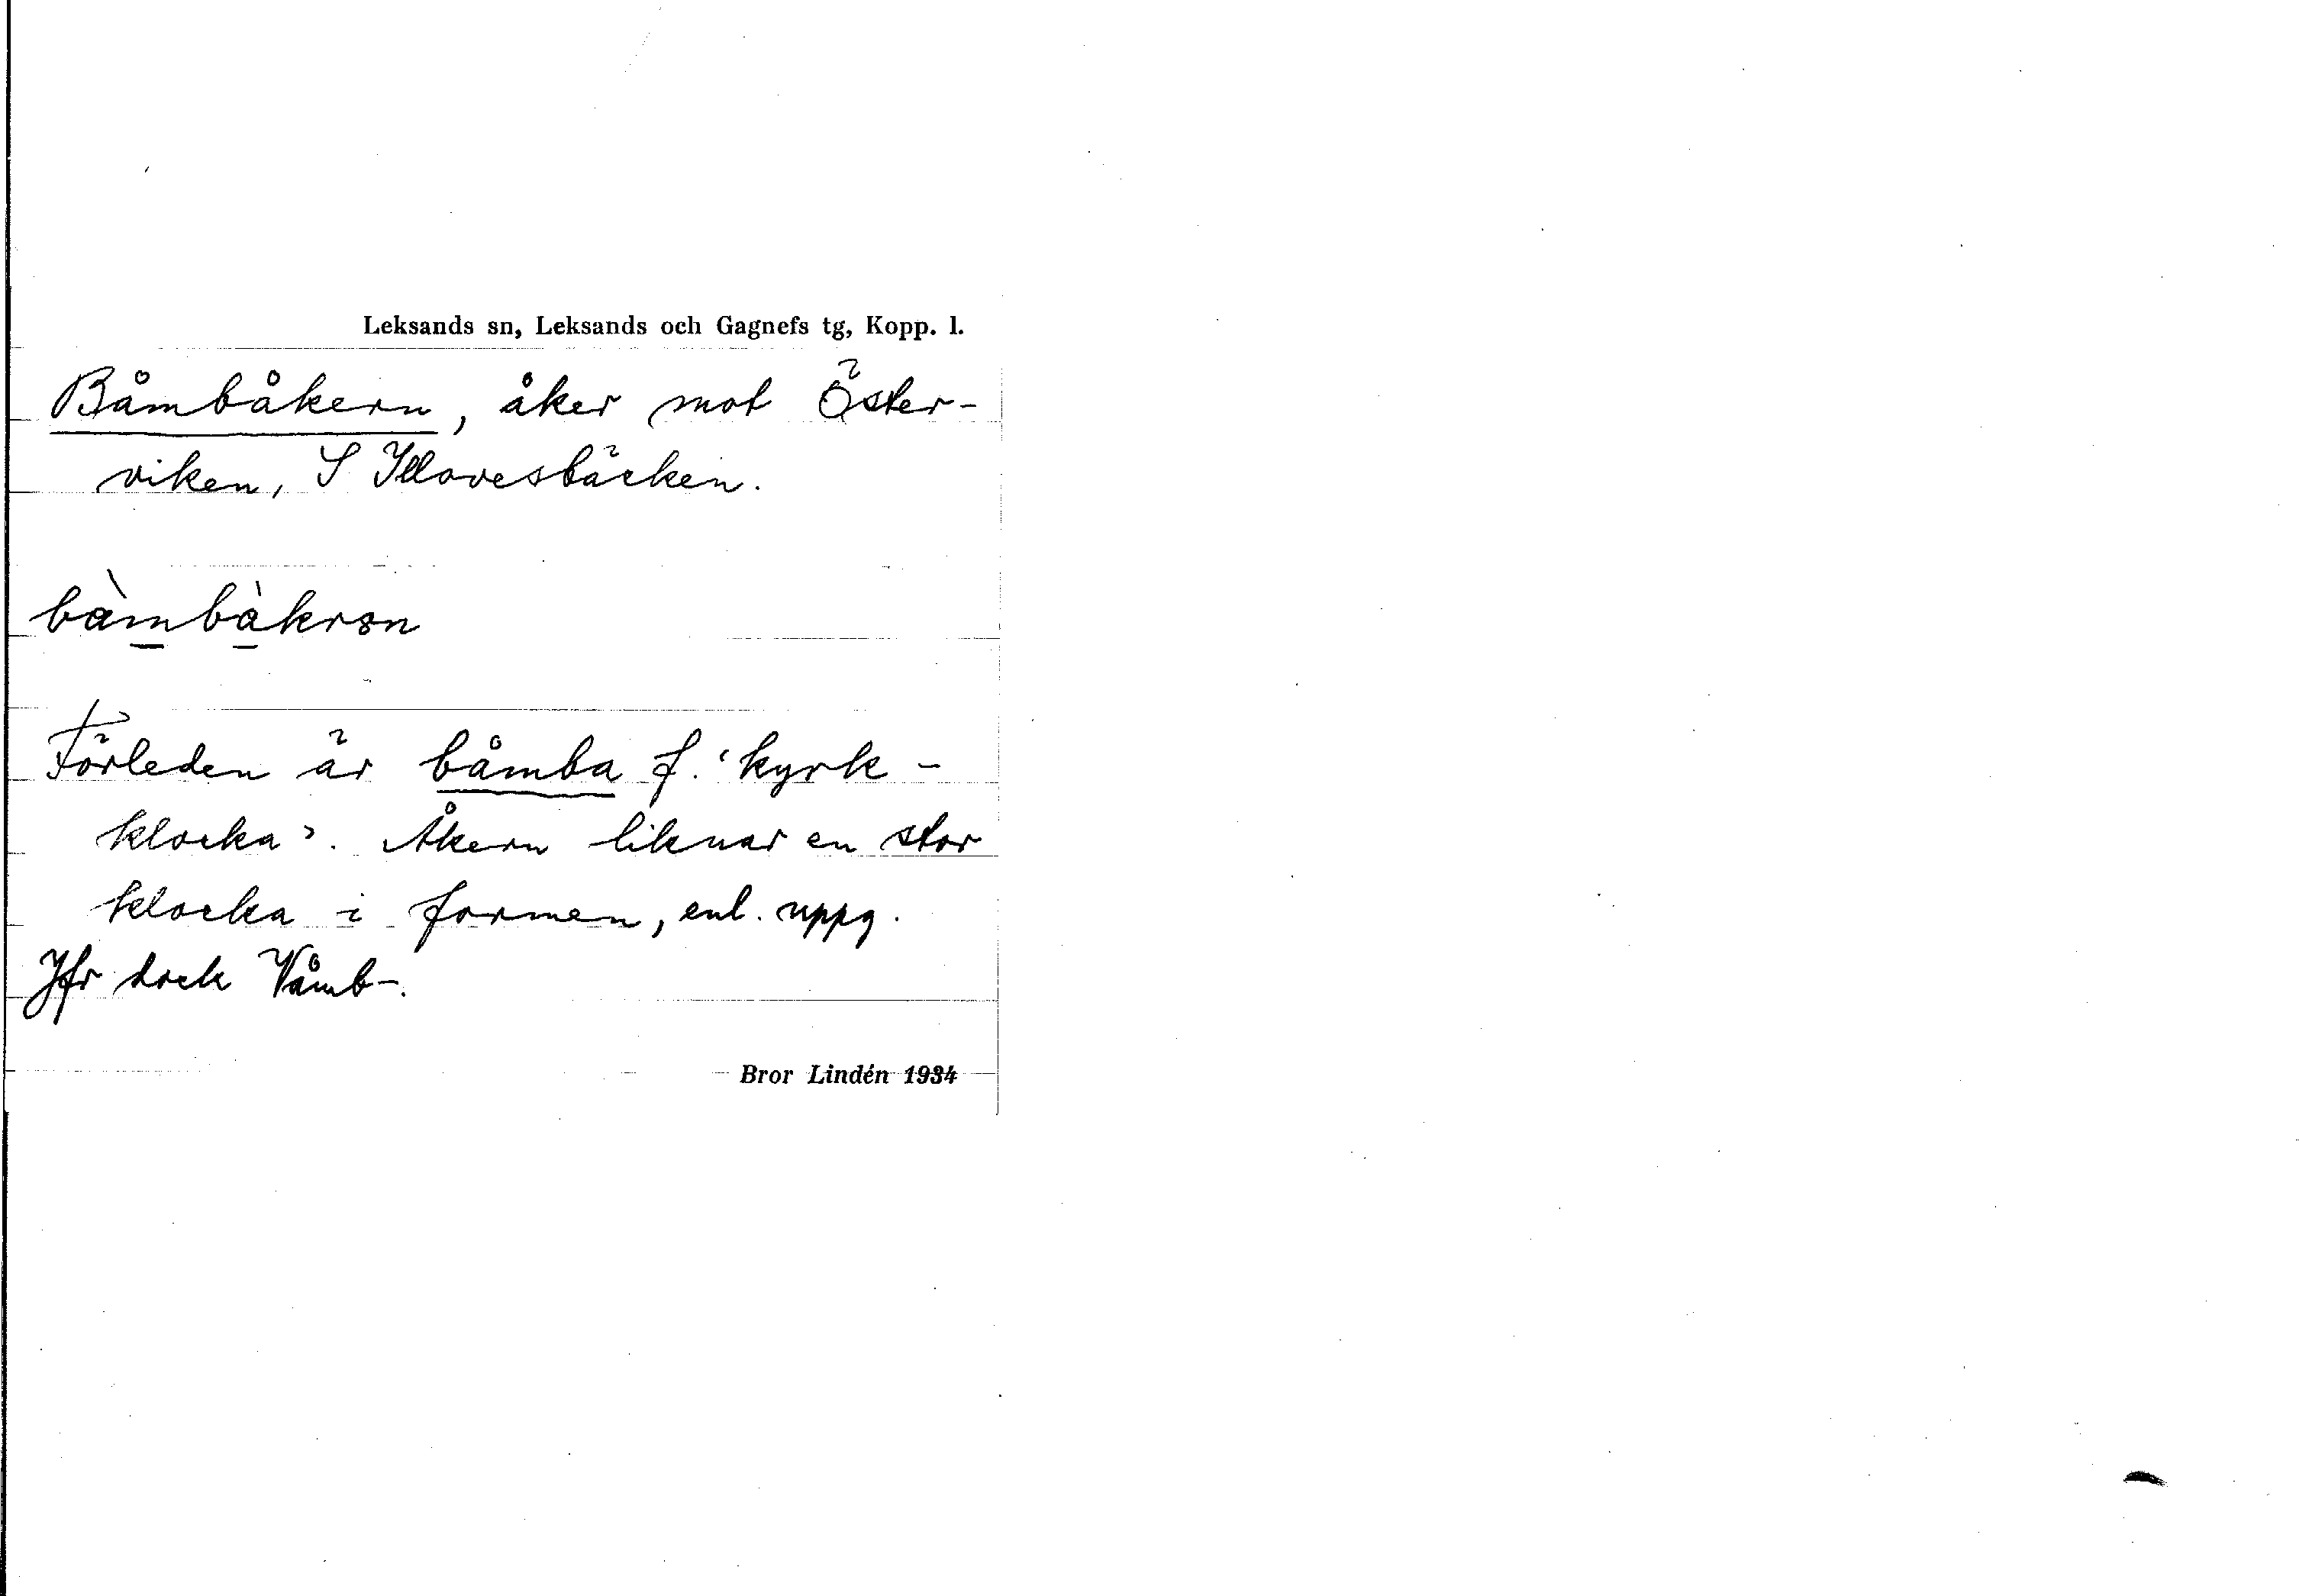 Leksands sn, Leksands och Gagnefs tg, Kopp. l.
Båmbåkern, åker mot Öster-
viken, S Illovesbäcken.
bàmbàkrən
Förleden är båmba f. ‘kyrk-
klocka’. Åkern liknar en stor
klocka i formen, enl. uppg.
Jfr dock Våmb-.
Bror Lindén 1934